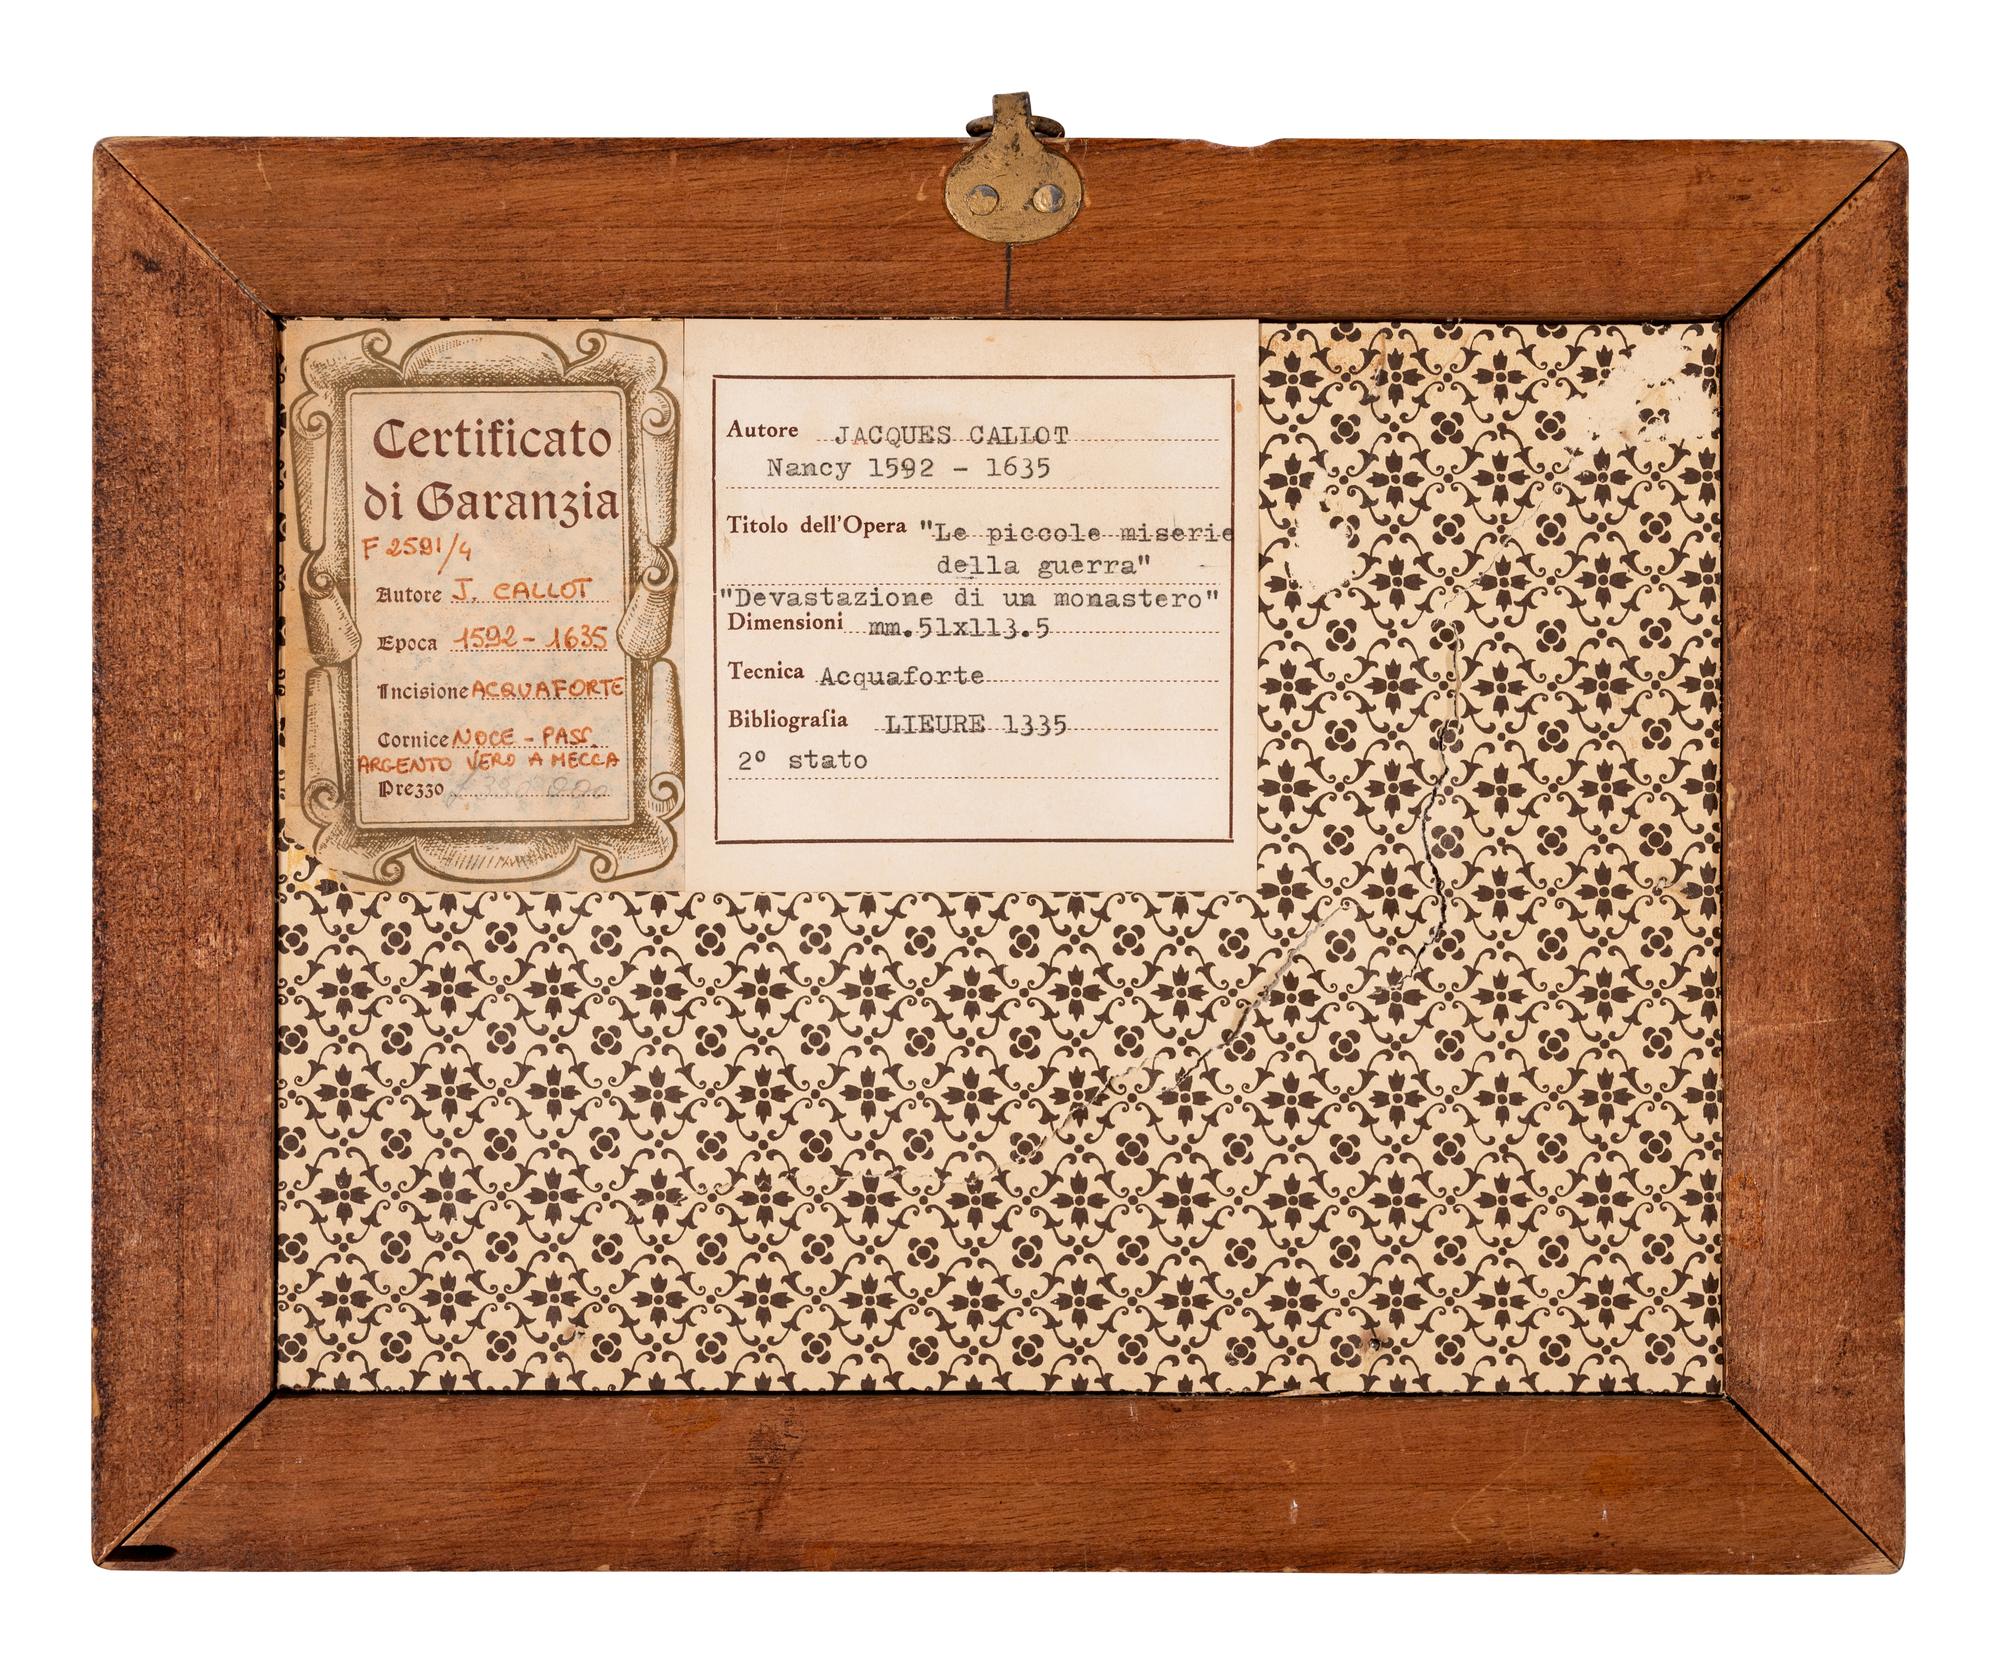 Certificato
di Garanzia
F 2591/4
Autore J. CALLOT
Epoca 1592 - 1635
Incisione ACQUAFORTE
Cornice NOCE - PASS.
ARGENTO VERO A MECCA
Prezzo
Autore JACQUES CALLOT
Nancy 1592 - 1635
Titolo dell'Opera "Le piccole miserie
della guerra"
"Devastazione di un monastero"
Dimensioni mm.51x113.5
Tecnica Acquaforte
Bibliografia LIEURE 1335
2º stato